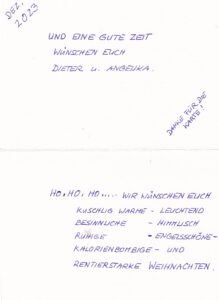 DEZ.
2023
UND EINE GUTE ZEIT
WÜNSCHEN EUCH
DIETER U. ANGELIKA.
DANKE FÜR DIE
KARTE!
HO, HO, HO..... WIR WÜNSCHEN EUCH
KUSCHLIG WARME - LEUCHTEND
BESINNLICHE - HIMMLISCH
RUHIGE - ENGELSSCHÖNE -
KALORIENBOMBIGE - UND
RENTIERSTARKE WEIHNACHTEN.